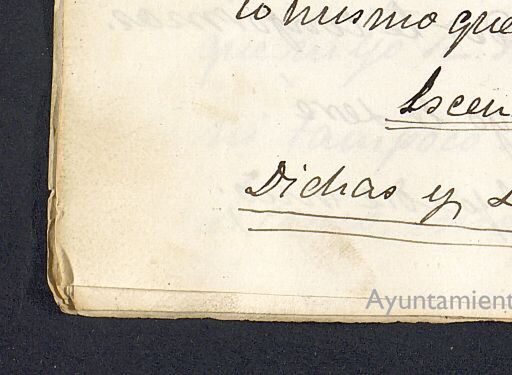 lo mismo que
Escen
Dichas y
Ayuntamient